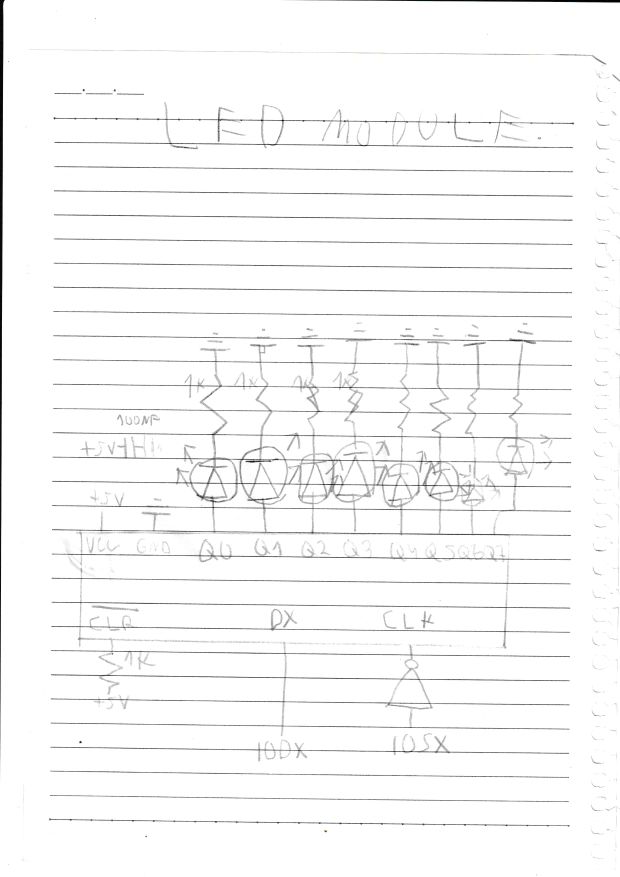 LED MODULE.
1K 1K 1K 1K
100NF
+5V
+5V
VCC GND Q0 Q1 Q2 Q3 Q4 Q5 Q6 Q7
CLR DX CLK
1K
+5V
IODX IOSX